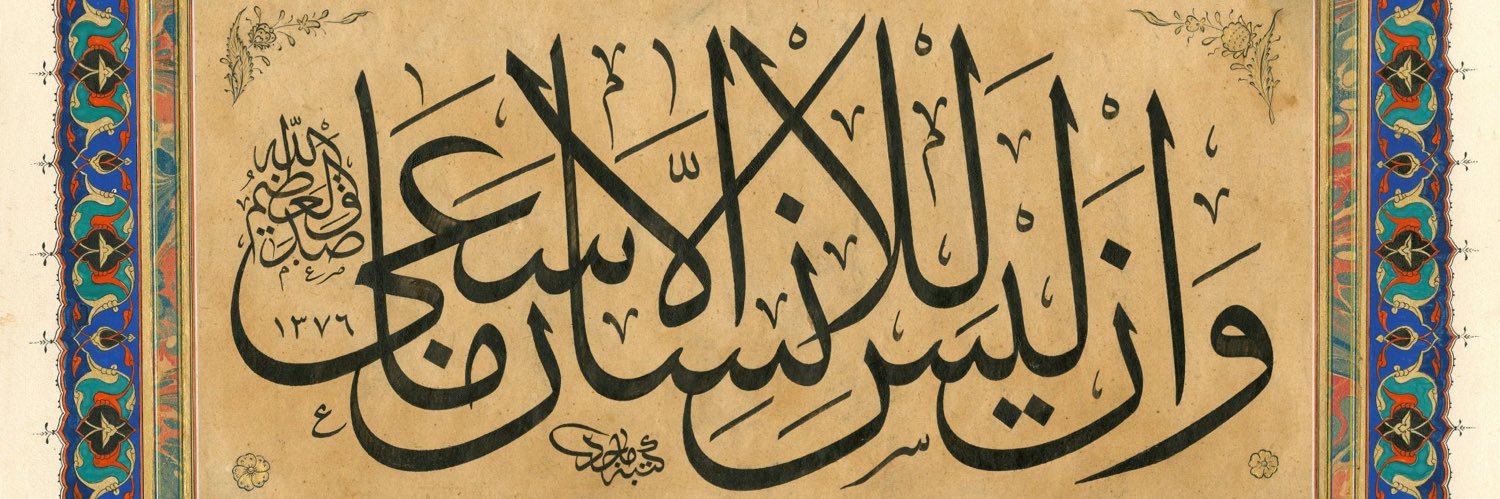 وَاَنْ لَيْسَ لِلْاِنْسَانِ اِلَّا مَا سَعٰى
صدق الله العظيم
١٣٧٦
كتبه ماجد